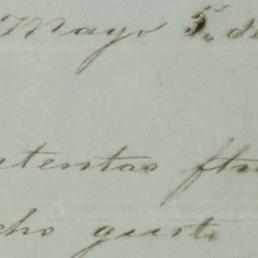 Mayo 5, de
atentas
cho gusto